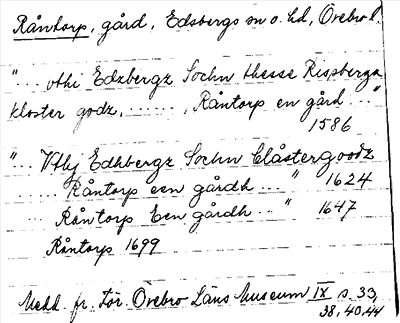 Råntorp, gård, Edsbergs sn o. hd, Örebro l.
"... vthi Edzbergz Sochn thesse Rispberga
kloster godz, ......, Råntorp en gård ..."
1586
"... Vthj Edhbergz Sochn Clåster goodz
... Råntorp een gårdh ..." 1624
.. Råntorp Een gårdh ..." 1647
Råntorp 1699
Medd. fr. För. Örebro Läns Museum IX s. 33,
38, 40, 44